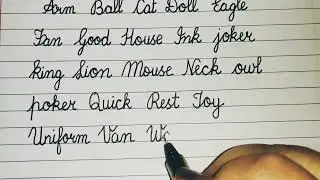 Arm Ball Cat Doll Eagle
Fan Good House Ink joker
king Lion Mouse Neck owl
poker Quick Rest Toy
Uniform Van Wo